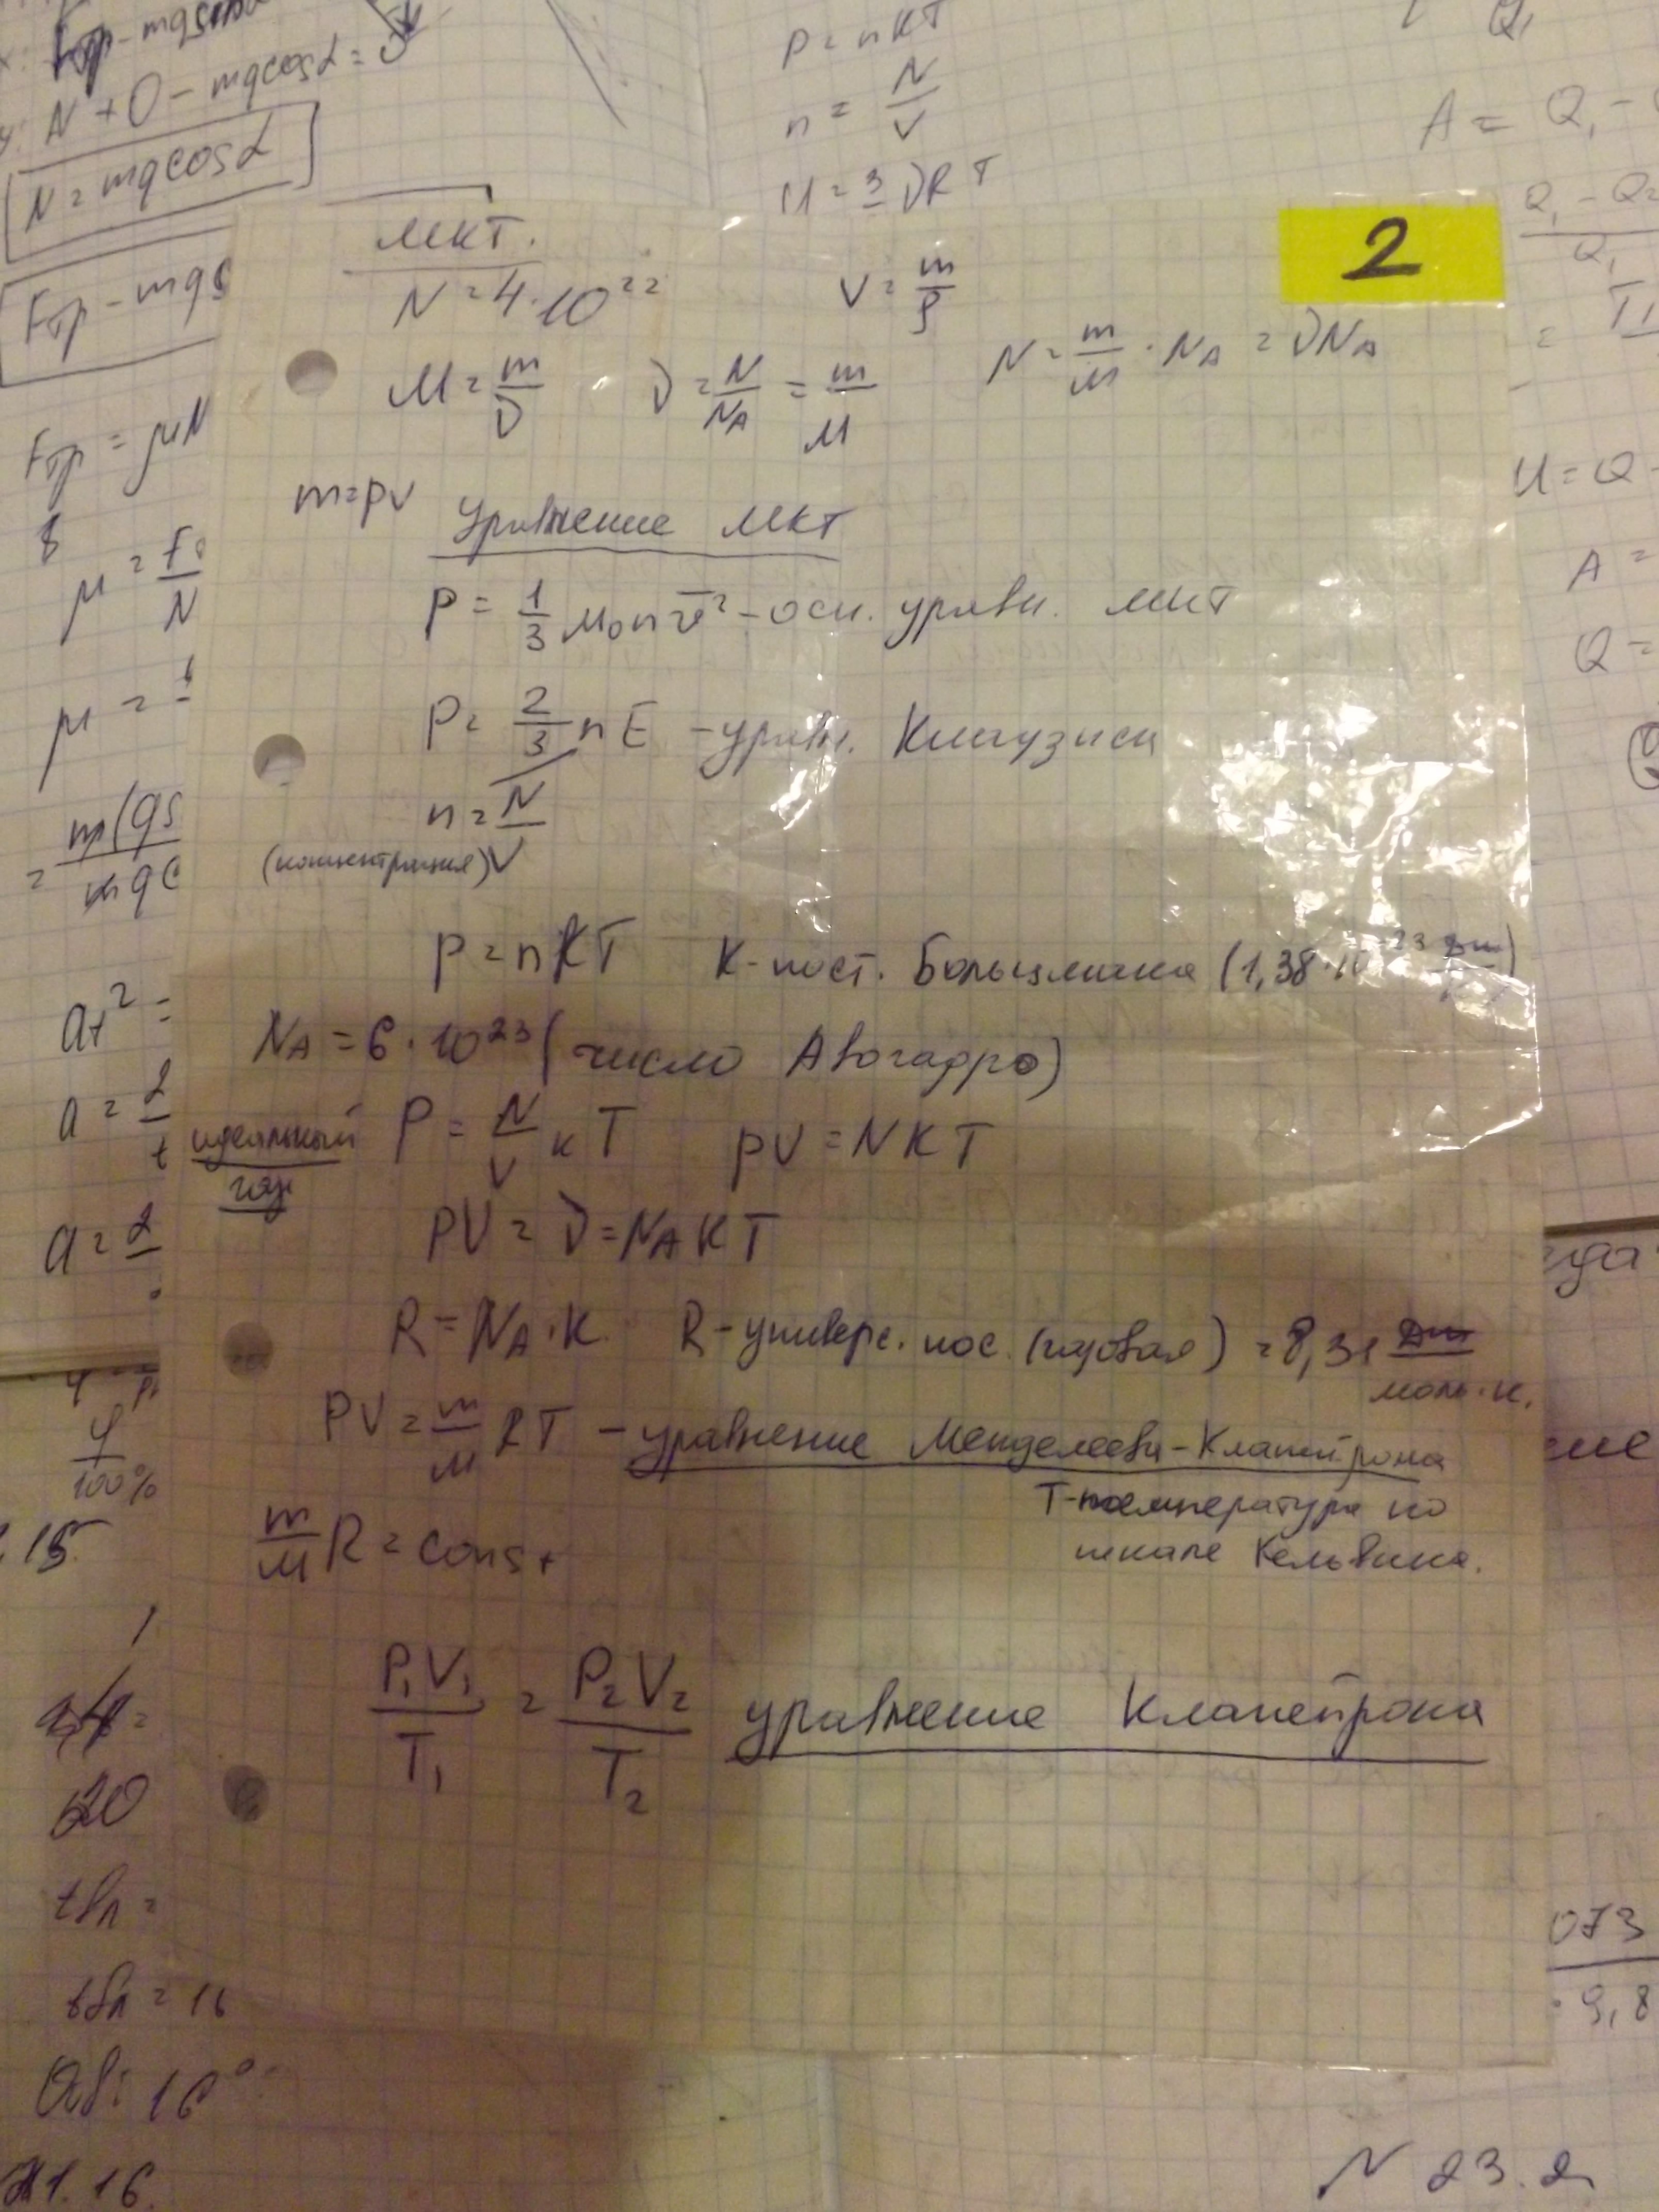 N + 0 - mgcosα =
N = mgcosα
Fтр - mgs
Fтр = μN
μ =
N
at² =
a = 2
t
a = 2
φ
100%
20
tвл =
tвл = 16
Об: 16°
21.16.
P = nKT
n = N/V
U = 3 νRT
Q₁
A = Q₁ -
Q₁ - Q₂
Q₁
= T₁
U = Q
A =
Q =
073
9,8
N 23.2
2
МКТ.
N = 4·10²²
V = m/ρ
M = m/ν ν = N/Nᴀ = m/M N = m/M · Nᴀ = νNᴀ
m = ρV
Уравнение МКТ
P = 1/3 m₀nv̄² - осн. уравн. МКТ
P = 2/3 nE - уравн. Клаузиса
n = N/V
(концентрация)
P = nKT K - пост. Больцмана (1,38·10⁻²³ Дж
Nᴀ = 6·10²³ (число Авогадро)
идеальный газ P = N/V кT PV = NKT
PV = ν = NᴀKT
R = Nᴀ·K R - универс. пос. (газовая) = 8,31 Дж/моль·К.
PV = m/M RT - уравнение Менделеева-Клапейрона
T - температура по
шкале Кельвина.
m/M R = const
P₁V₁/T₁ = P₂V₂/T₂ уравнение Клапейрона